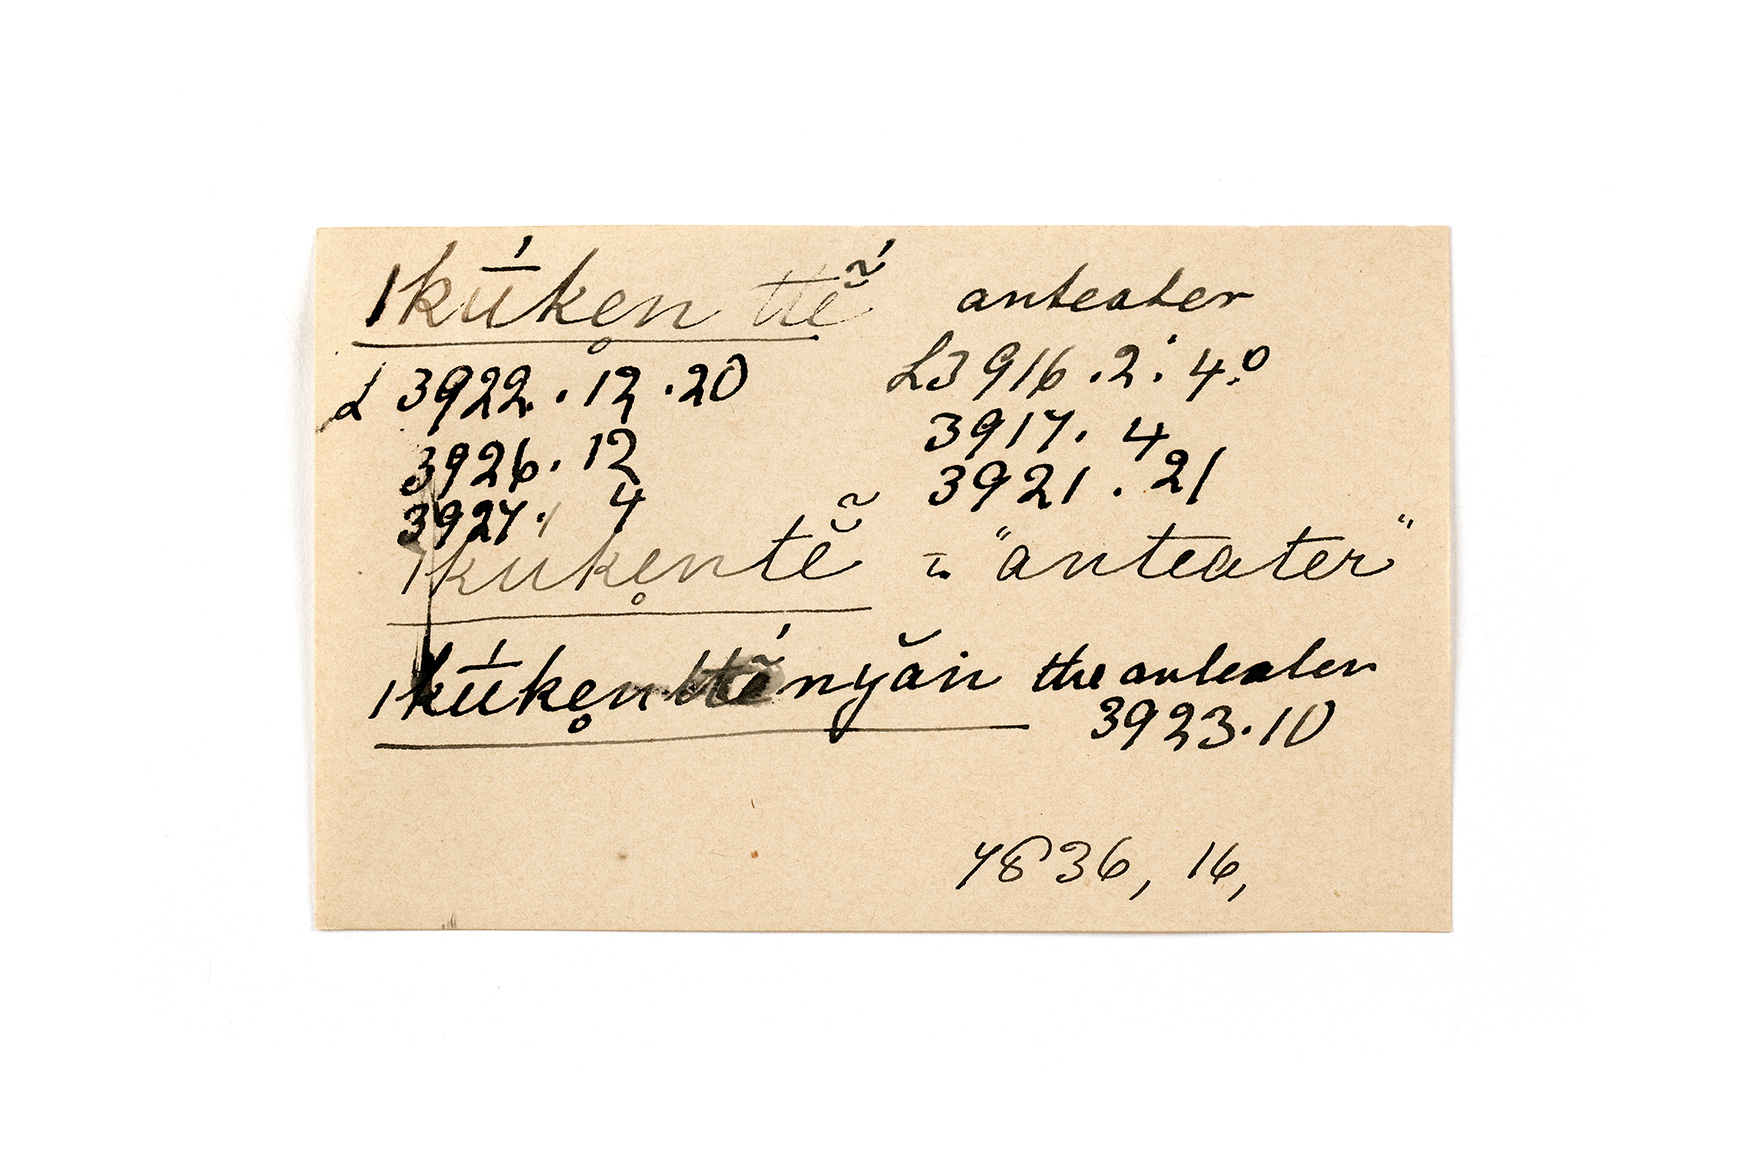 |kū́ken̥ ttẽ̆́ anteater
L 3922. . 12 . 20 L3916 . 2 . 4.0
3926. 12 3917. 4
3927. 4 3921 . 21
|kuke̥ntẽ̆ = "anteater"
|kū́ke̥nttẽ́nyăn the anteater
3923.10
7836, 16,